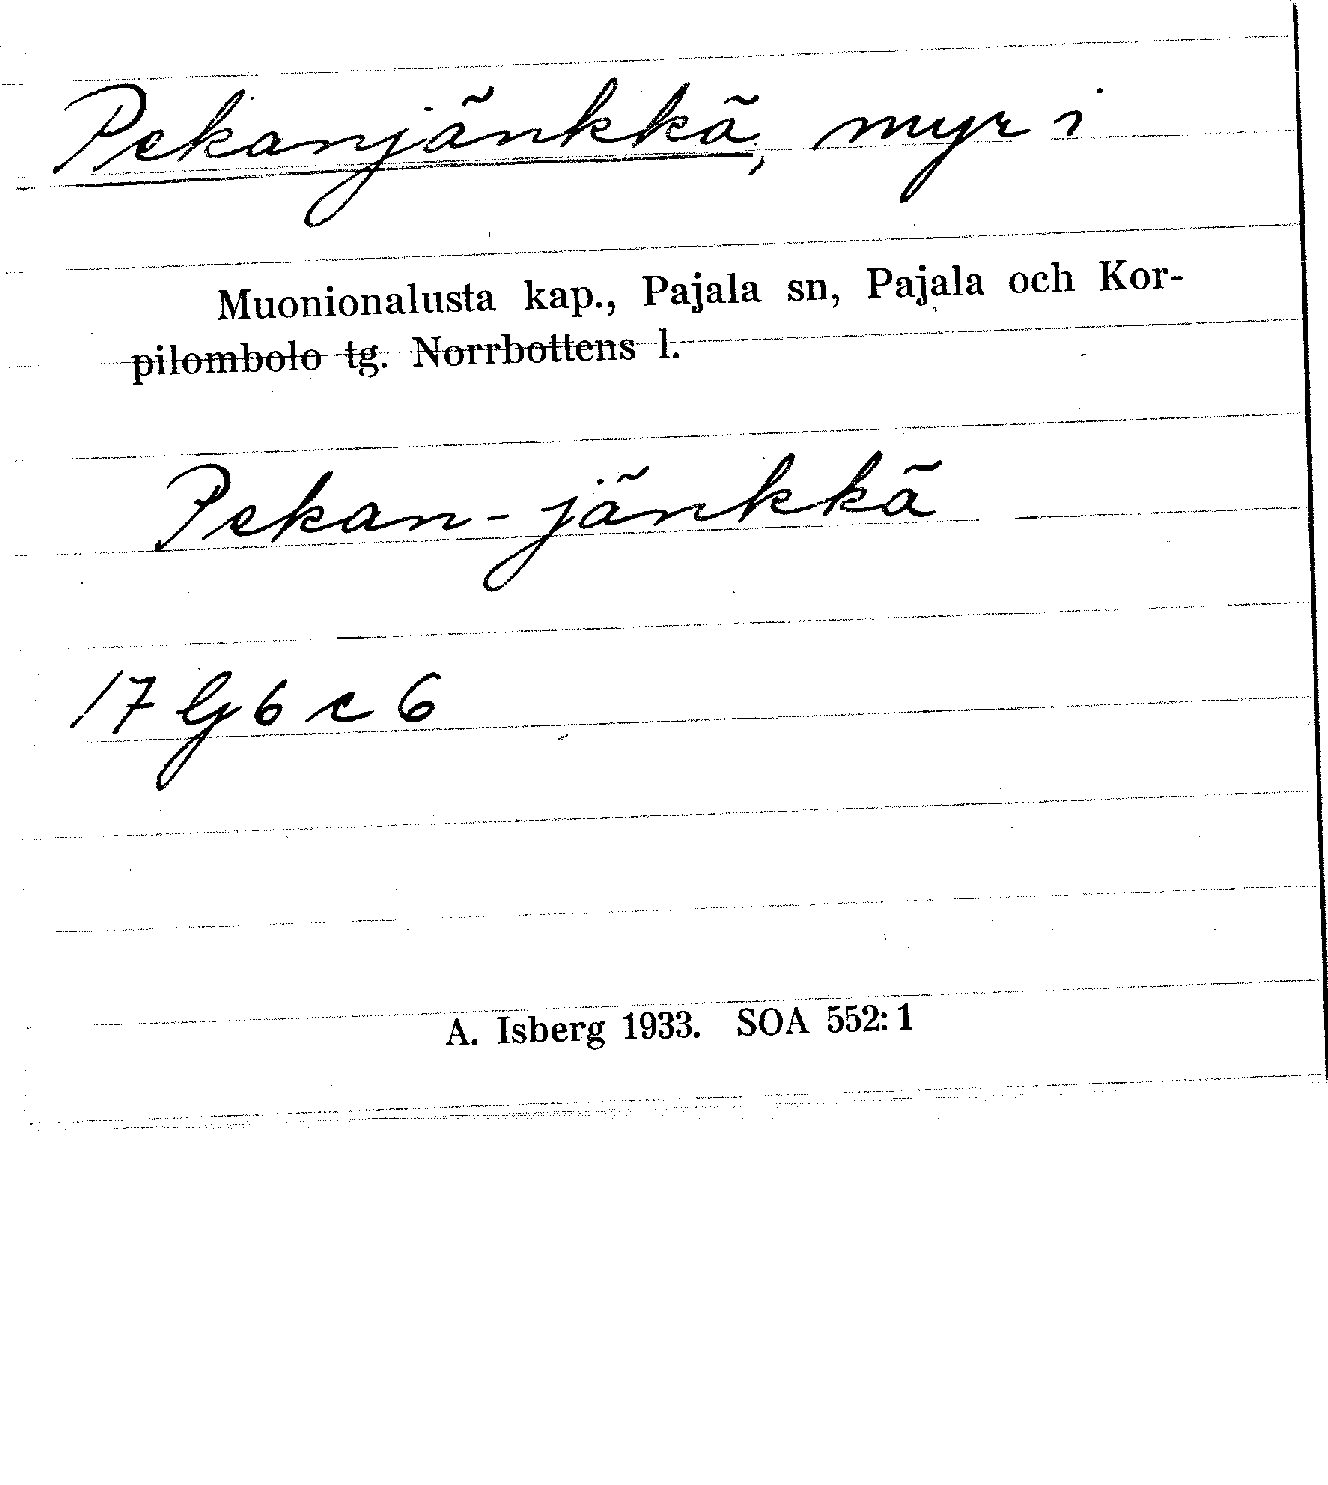 Pekanjänkkä, myr i
Muonionalusta kap., Pajala sn, Pajala och Kor-
pilombolo tg. Norrbottens l.
Pekan-jänkkä
17 G 6 c 6
A. Isberg 1933. SOA 552:1